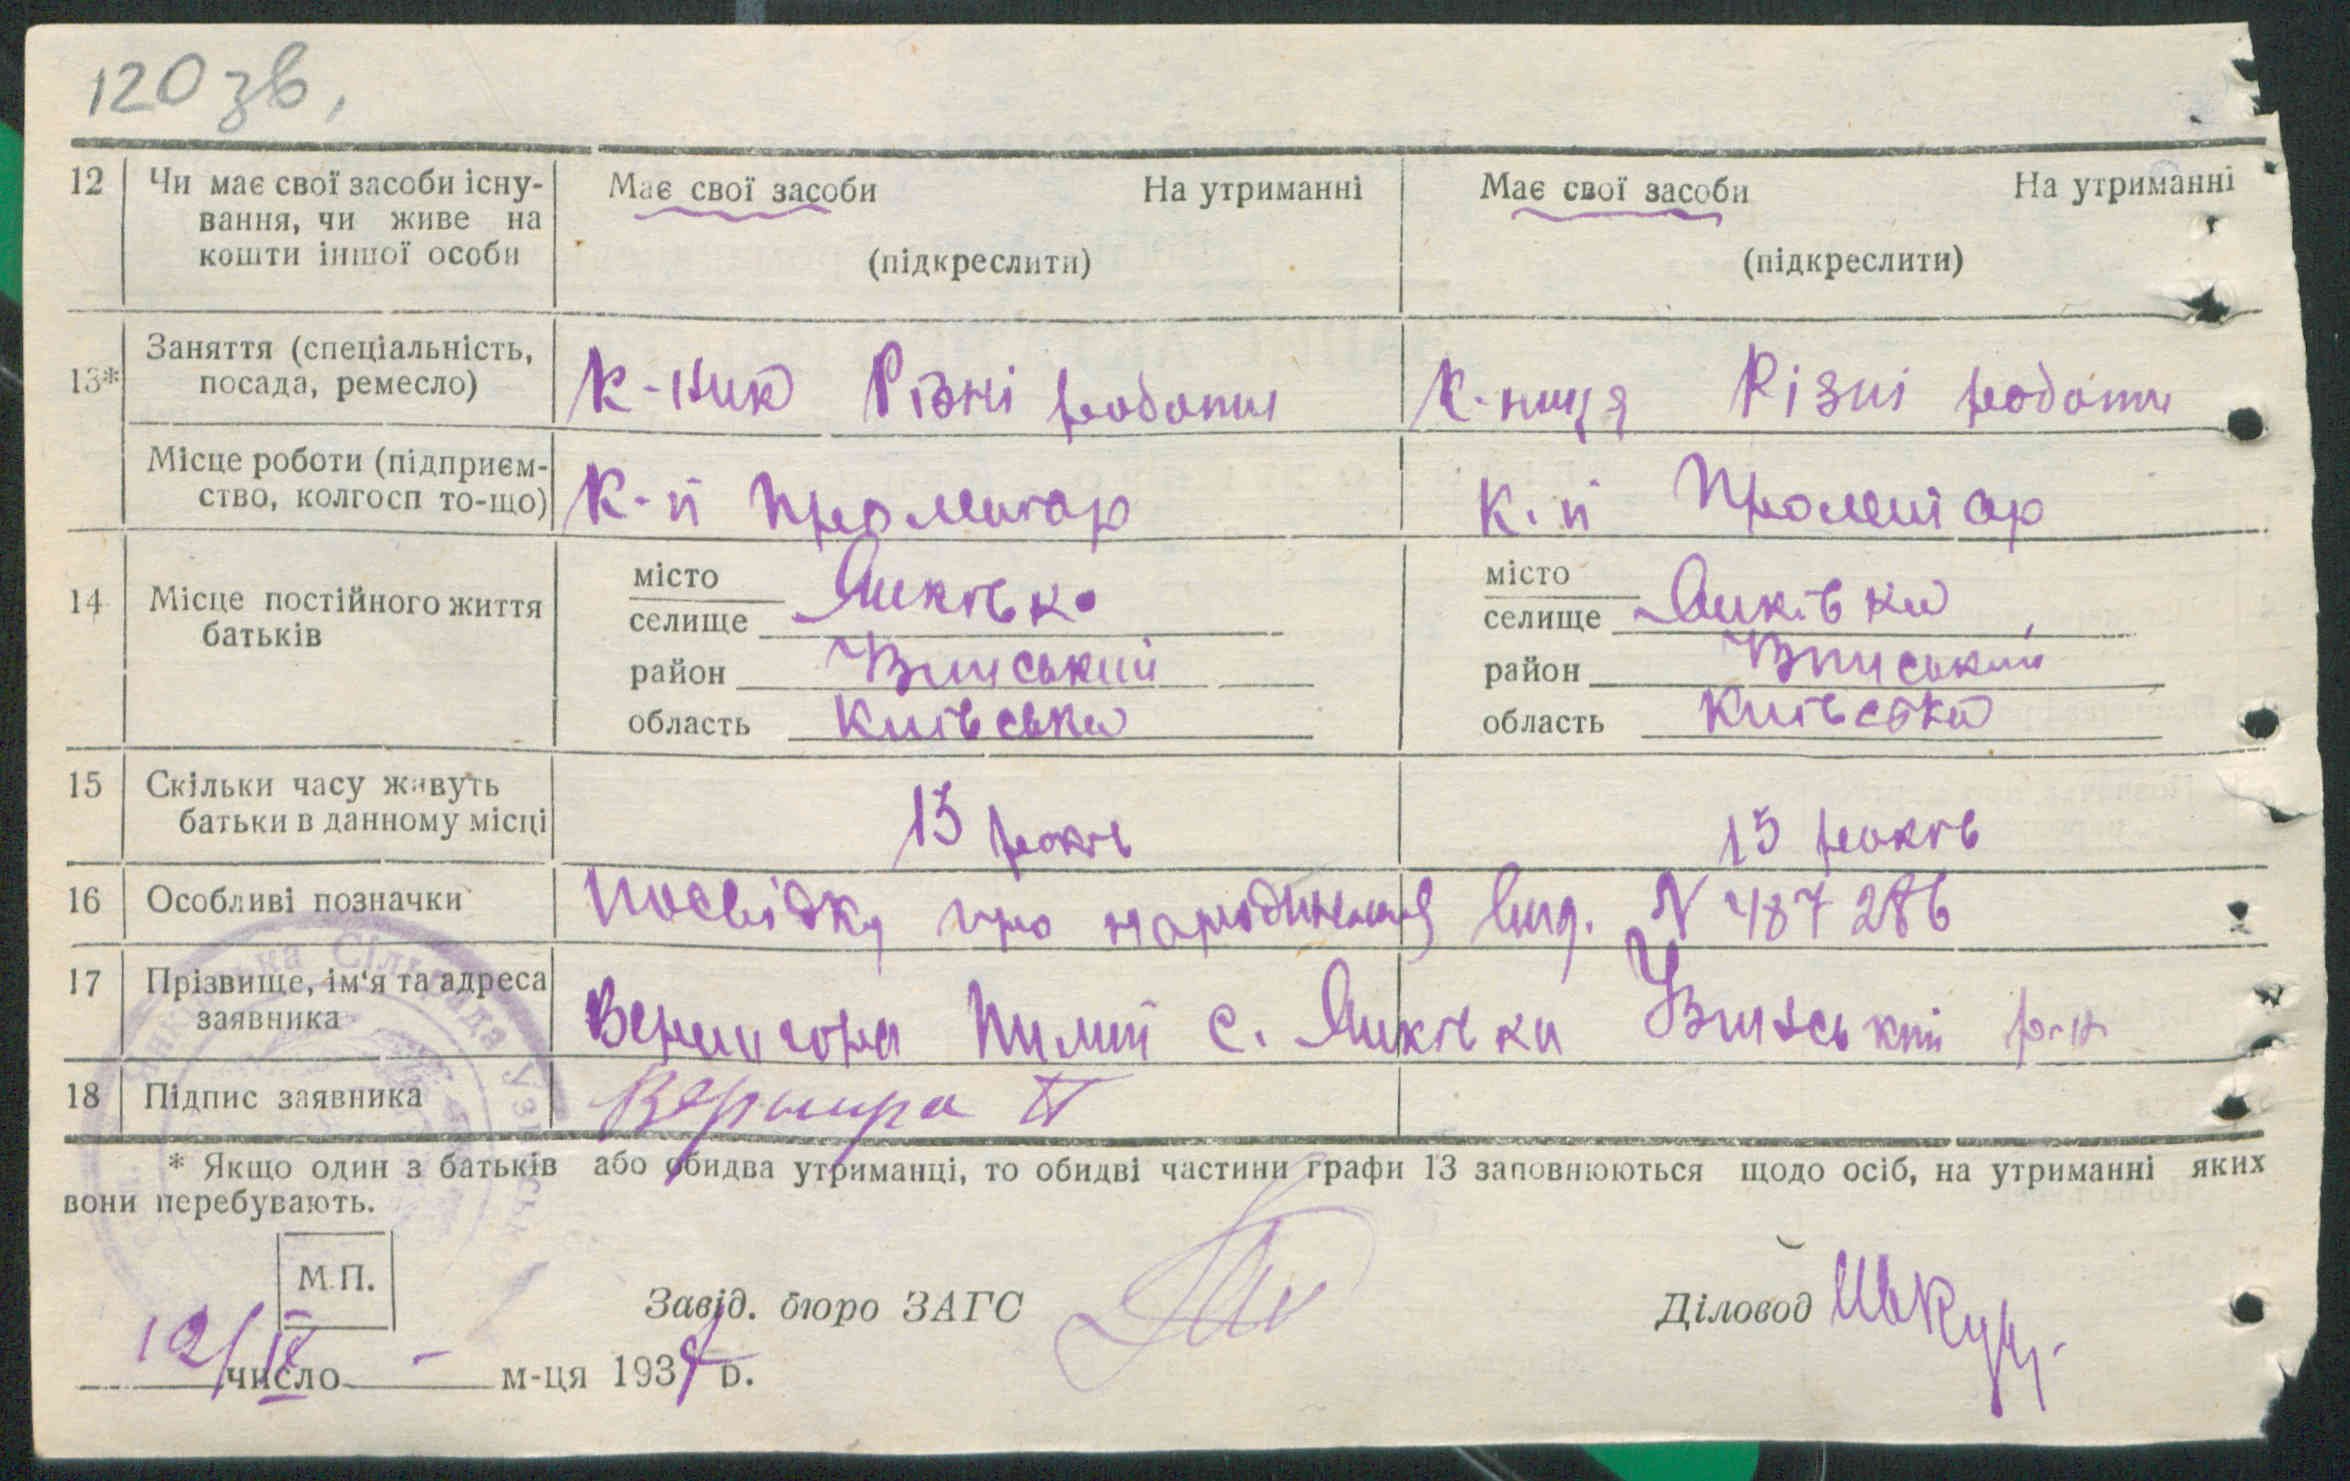 120 зв.
12 Чи має свої засоби існу- Має свої засоби На утриманні Має свої засоби На утриманні
вання, чи живе на
кошти іншої особи (підкреслити) (підкреслити)
Заняття (спеціальність,
13* посада, ремесло) к-ник Різні роботи к-ниця Різні роботи
Місце роботи (підприєм-
ство, колгосп то-що) к-п к-п
місто місто
14 Місце постійного життя селище Янківка селище Янківка
батьків район район
область Київська область Київська
15 Скільки часу живуть
батьки в данному місці 15 років 15 років
16 Особливі позначки Посвідку про народження вид. N 487286
17 Прізвище, ім'я та адреса
заявника с. Янківка р-н
18 Підпис заявника
* Якщо один з батьків або обидва утриманці, то обидві частини графи 13 заповнюються щодо осіб, на утриманні яких
вони перебувають.
М.П.
Завід. бюро ЗАГС Діловод
число - м-ця 193 р.